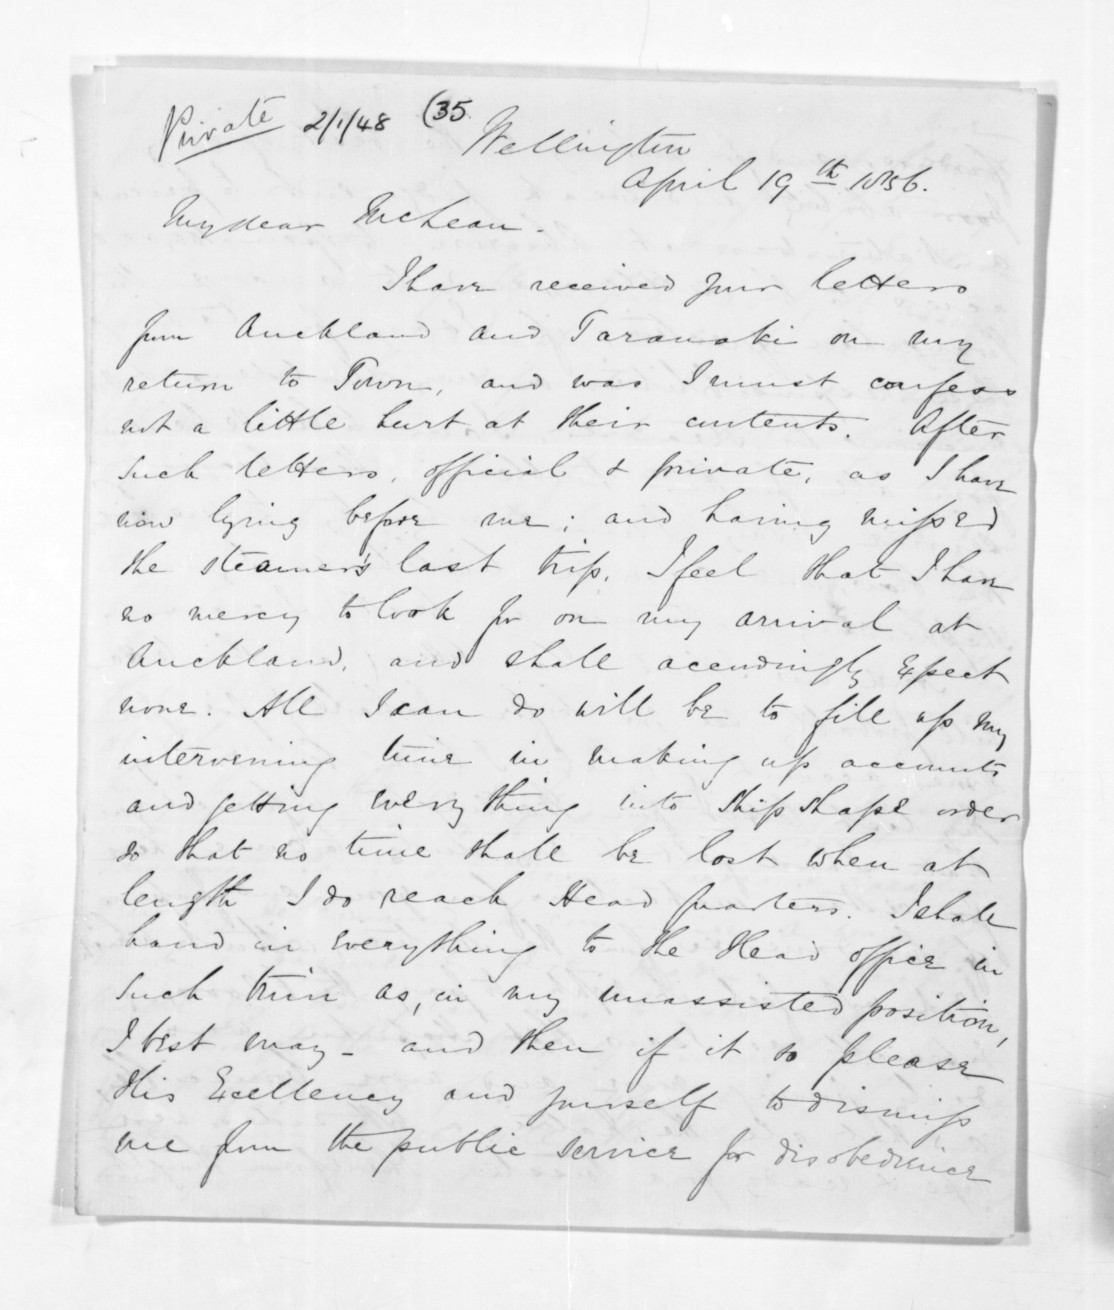 Private 2/1/48 (35
Wellington
April 19th 1856.
My dear McLean.
I have received your letters
from Auckland and Taranaki on my
return to Town, and was I must confess
not a little hurt at their contents. After
such letters, official & private, as I have
now lying before me; and having missed
the steamer's last trip, I feel that I have
no mercy to look for on my arrival at
Auckland, and shall accordingly expect
none. All I can do will be to fill up my
intervening time in making up accounts
and getting everything into ship shape order
so that no time shall be lost when at
length I do reach Head quarters. I shall
hand in everything to the Head office in
such trim as, in my unassisted position,
I best may - and then if it so please
His Excellency and yourself to dismiss
me from the public service for disobedience